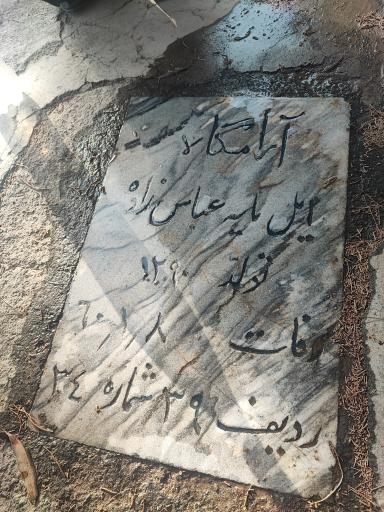 آرامگاه
ایل بایه عباس زاده
تولد ۱۲۹۰
وفات ۶۰/۱/۸
ردیف ۳۹ شماره ۳۴